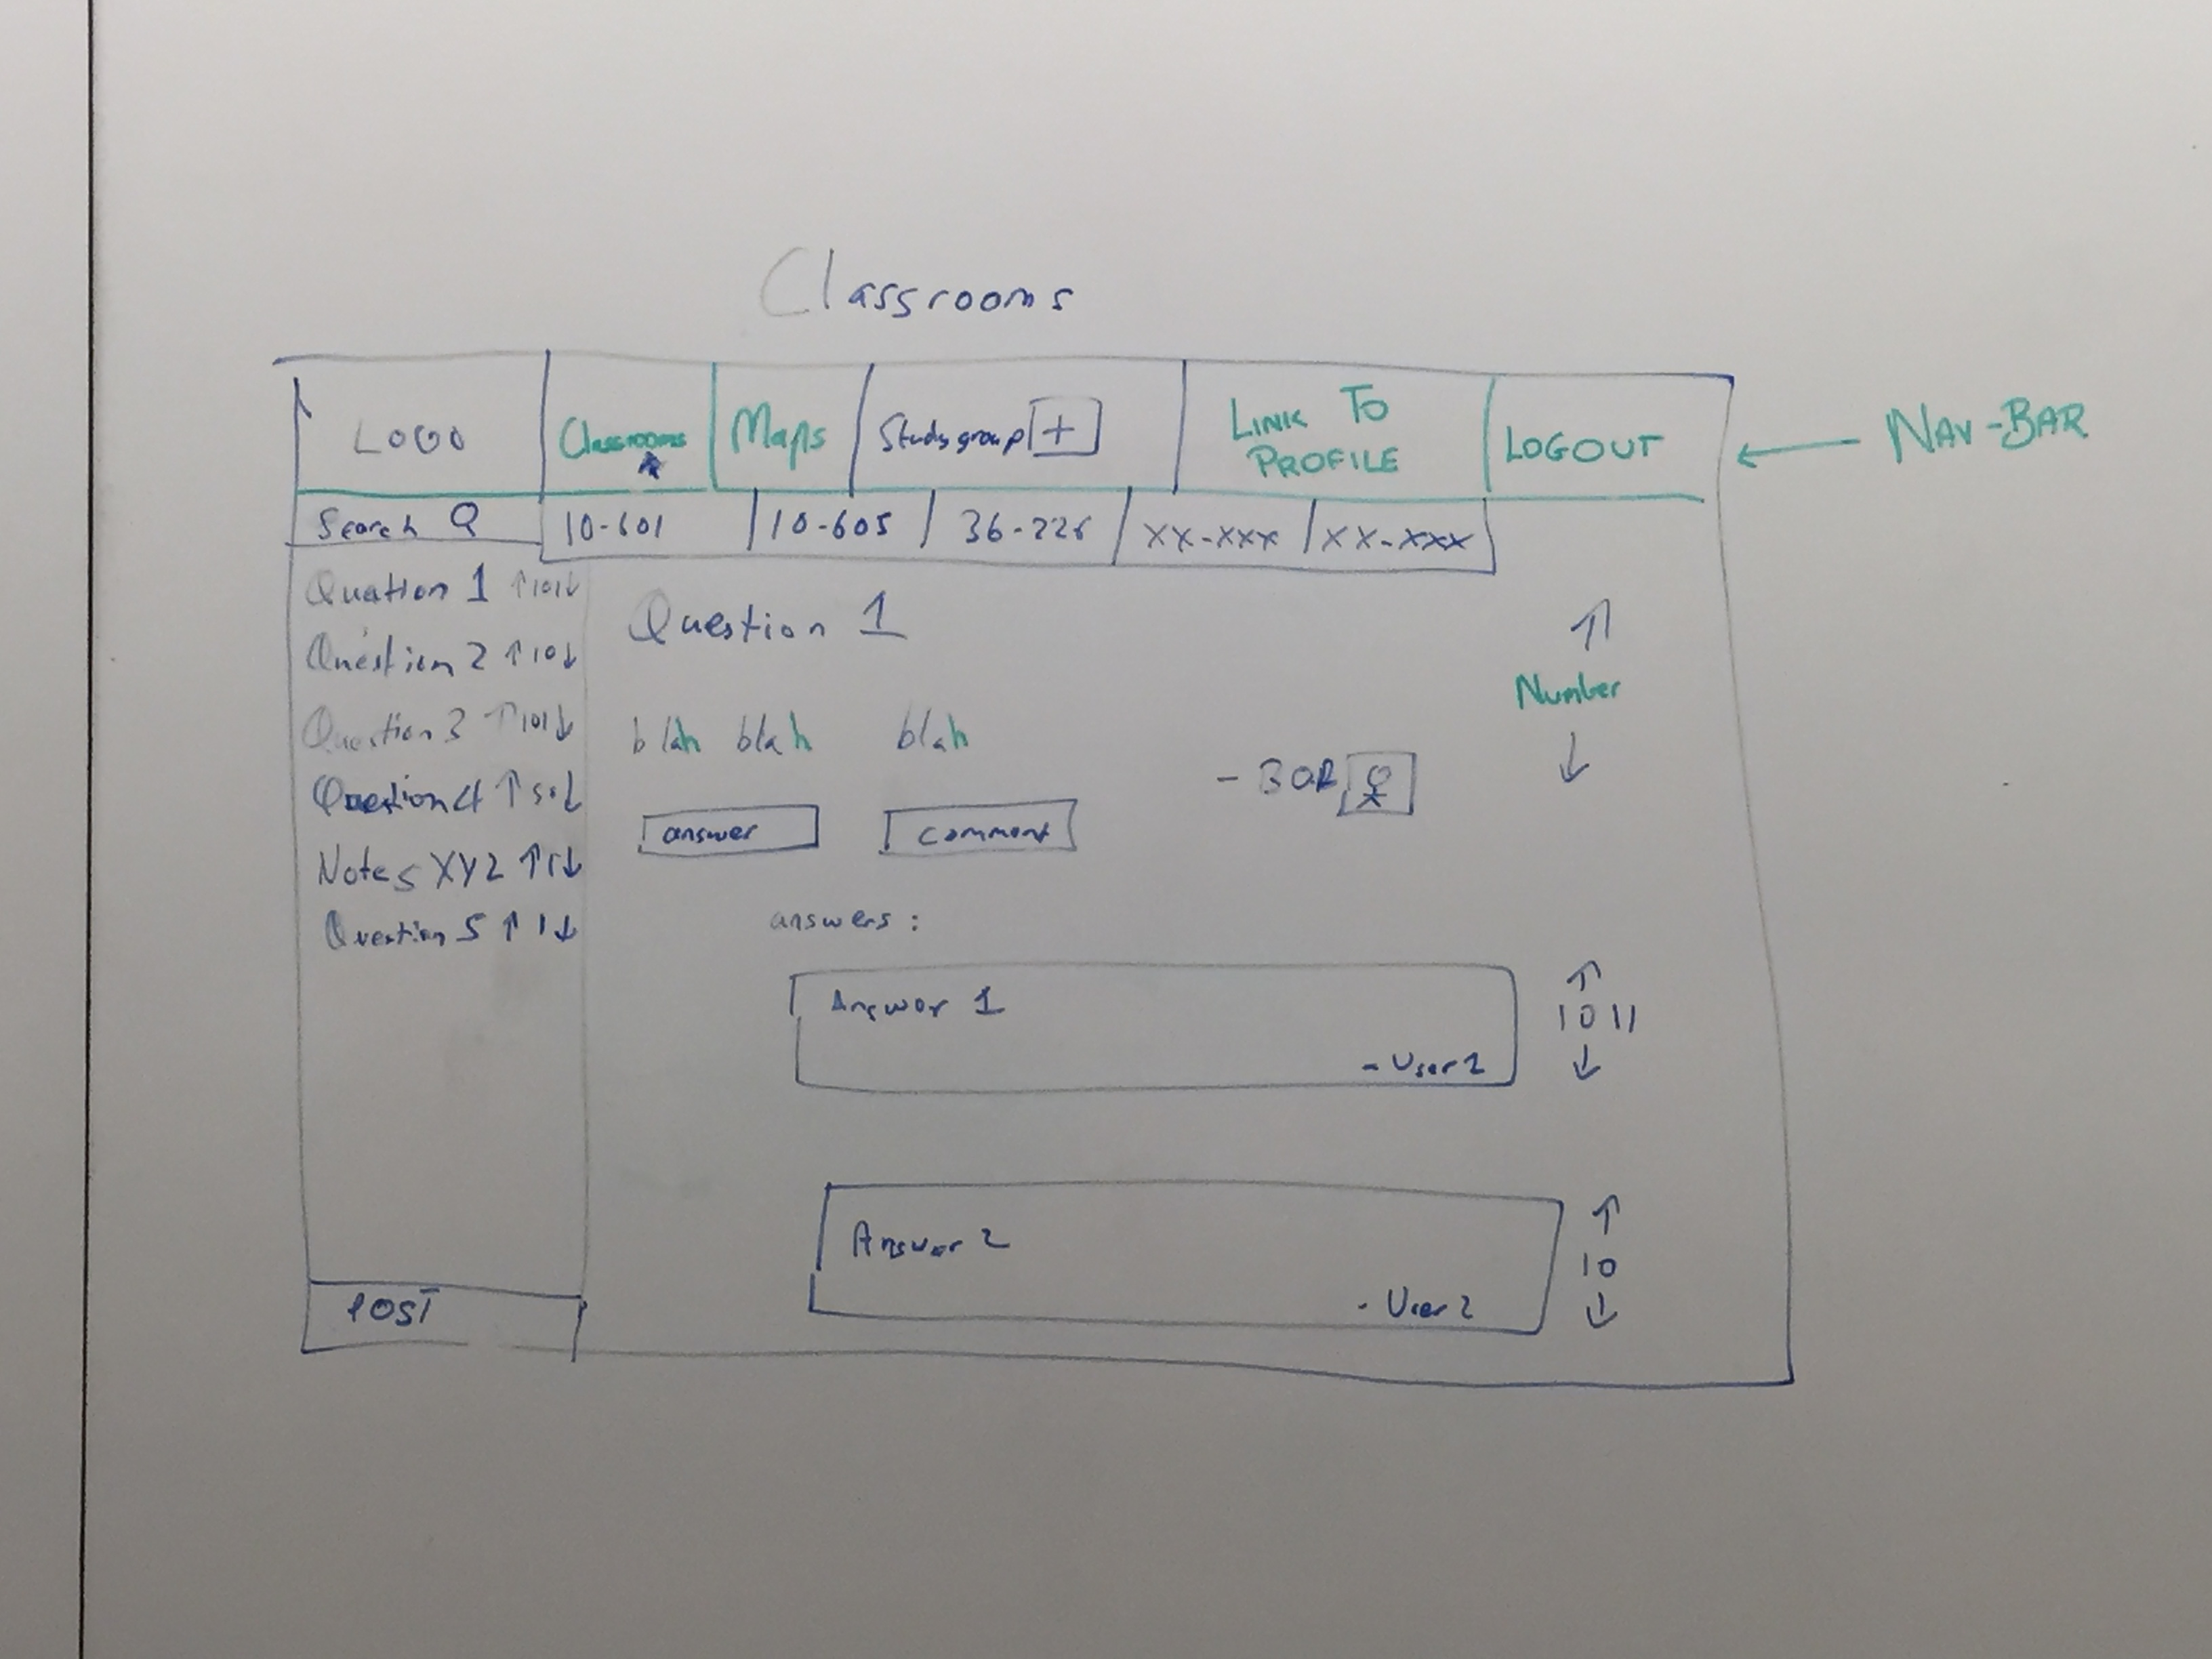 Classrooms
LOGO Classrooms Maps Study group + LINK TO PROFILE LOGOUT ← NAV-BAR
Search 10-601 10-605 36-226 XX-XXX XX-XXX
Question 1 ↑101↓
Question 2 ↑10↓
Question 3 ↑101↓
Question 4 ↑50↓
Notes XYZ ↑1↓
Question 5 ↑1↓
POST
Question 1
↑
Number
↓
blah blah blah
- BOB
answer comment
answers:
Answer 1
- User 1
↑
1011
↓
Answer 2
- User 2
↑
10
↓